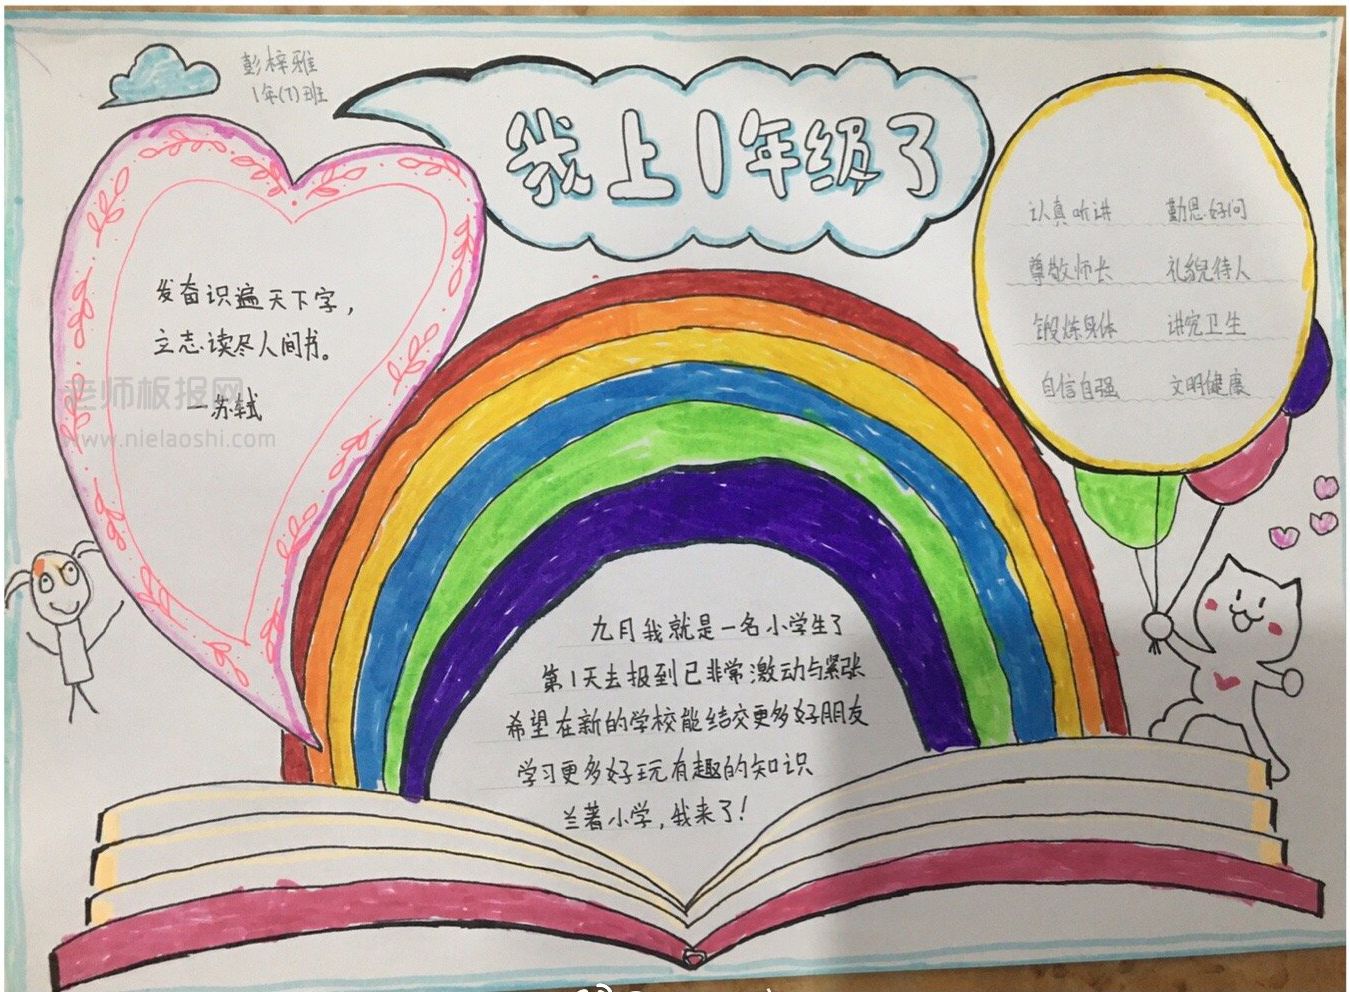 彭梓雅
1年(7)班
我上1年级了
发奋识遍天下字，
立志读尽人间书。
一苏轼
老师板报网
www.nielaoshi.com
认真听讲 勤思好问
尊敬师长 礼貌待人
锻炼身体 讲究卫生
自信自强 文明健康
九月我就是一名小学生了
第1天去报到已非常激动与紧张
希望在新的学校能结交更多好朋友
学习更多好玩有趣的知识
兰著小学，我来了！